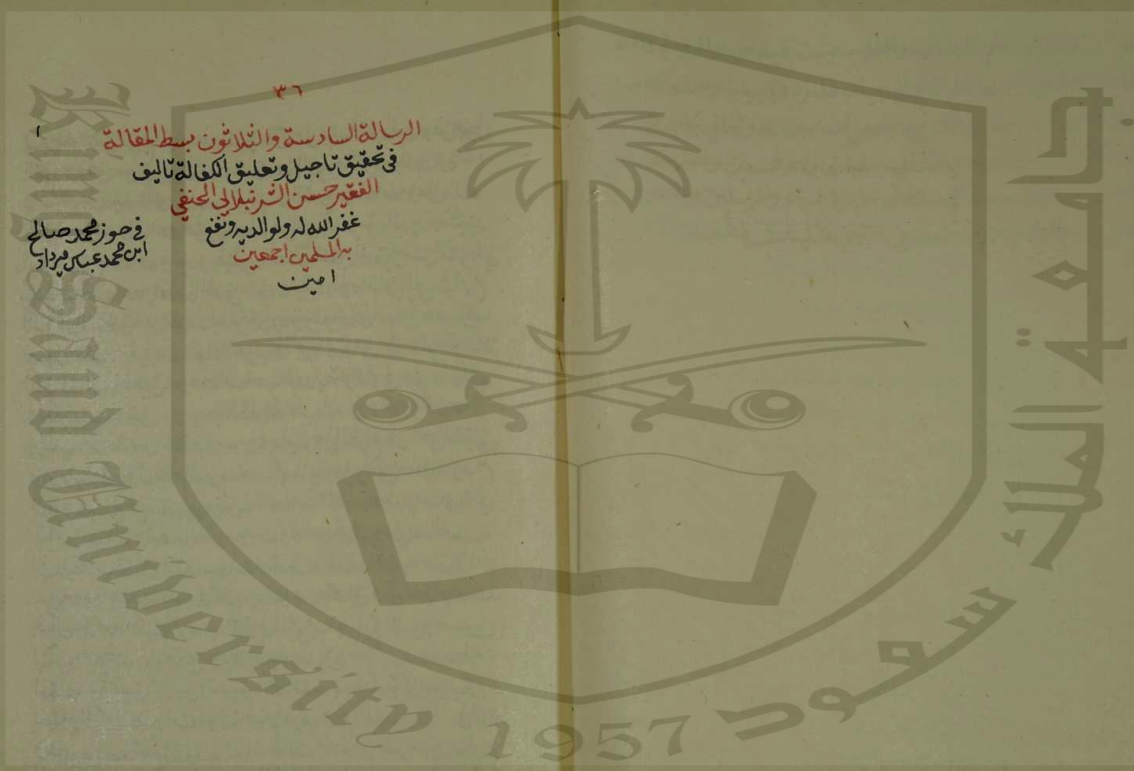 ٣٦
١
الرسالة السادسة والثلاثون بسط المقالة
في تحقيق تاجيل وتعليق الكفالة تاليف
الفقير حسن الشرنبلالي الحنفي
غفر الله له ولوالديه ونفع
به المسلمين اجمعين
امين
في حوز محمد صالح
ابن محمد عباس ميرداد
جامعة الملك سعود
King Saud University
1957